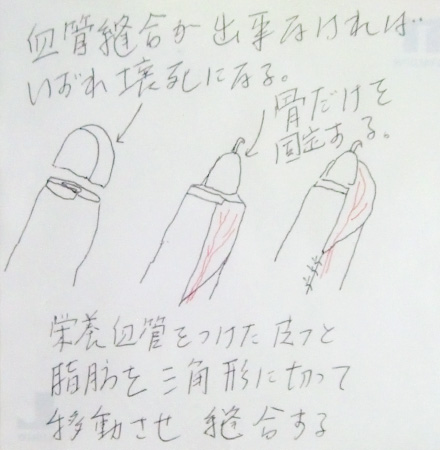 血管縫合が出来なければ…
いずれ壊死になる。
骨だけを
固定する。
栄養血管をつけた皮フと
脂肪を三角形に切って
移動させ 縫合する